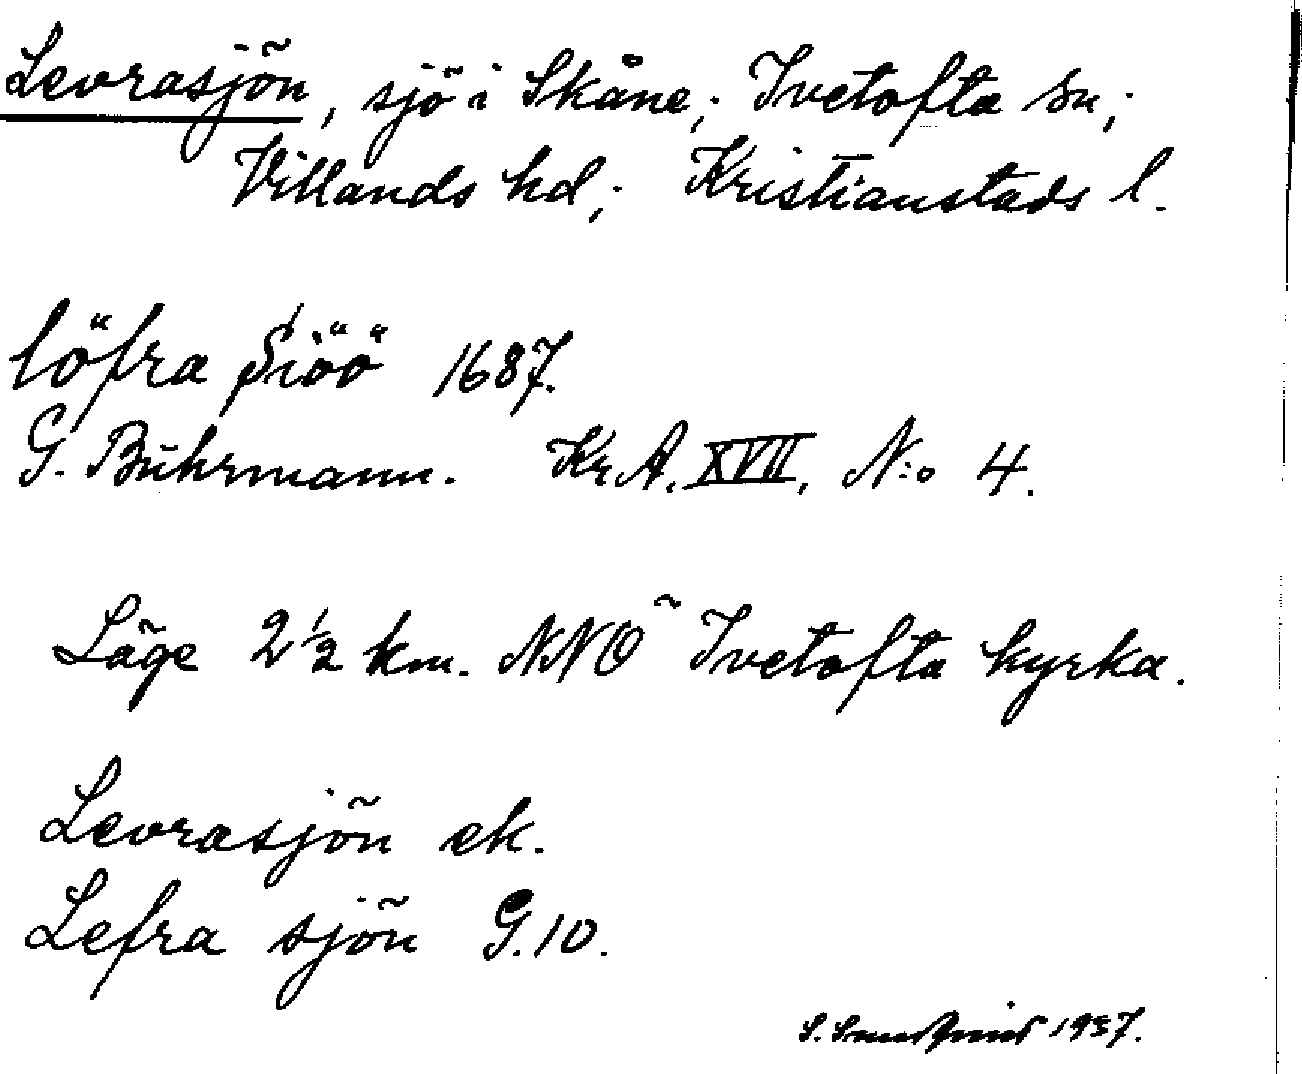 Levrasjön, sjö i Skåne; Ivetofta sn;
Villands hd; Kristianstads l.
löfra Siöö 1687.
G. Buhrmann. Kr.A. XVII, N:o 4.
Läge 2½ km. NNO Ivetofta kyrka.
Levrasjön ek.
Lefra sjön G.10.
S. 1937.